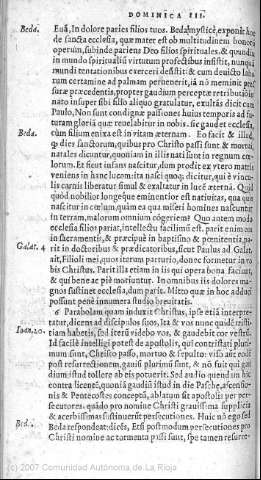 DOMINICA III.
Beda.
Euã, In dolore paries filios tuos. Beda mysticè, exponit hæc
de sancta ecclesia, quæ mater est ob multitudinem bonorũ
operum, subinde pariens Deo filios spirituales. & quandiu
in mundo spiritualis virtutum profectibus insistit, nunquã
mundi tentationibus exerceri desistit: & cum deuicto labo-
rum certamine ad palmam peruenerit, iã nõ meminit pres-
suræ præcedentis, propter gaudium perceptæ retributiõis
nato insuper sibi filio aliquo gratulatur, exultãs dicit cum
Paulo, Non sunt condignæ passiones huius temporis ad fu-
turam gloria quæ reuelabitur in nobis. sic gaudet ecclesia,
Beda.
cùm filium enixa est in vitam æternam. Eo facit & illud,
dies sanctorum, quibus pro Christo passi sunt & mortui,
natales dicantur, quoniam in illis nati sunt in regnum cœ-
lorum. Et sicut infans nascitur, dum prodit ex vtero matris
veniens in hanc lucem: ita nasci quoq; dicitur, qui è vincu-
lis carnis liberatur simul & exaltatur in lucẽ æternã. Quid
quòd nobilior longéque eminentior est natiuitas, ad quã
nascitur in cœlum, quàm ea qua miseri homines nascuntur
in terram, malorum omnium cõgeriem? Quo autem modo
ecclesia filios pariat, intellectu facillimũ est. parit enim eos
in sacramentis, & præcipuè in baptismo & pœnitentia, pa-
Galat. 4
rit in doctoribus & prædicatoribus, sicut Paulus ad Galat.
ait, Filioli mei, quos iterum parturio, donec formetur in vo-
bis Christus. Parit illa etiam in iis qui opera bona faciunt,
& qui bene ac piè moriuntur. In omnibus iis dolores ma-
gnos sustinet ecclesia, dum parit. Mitto quæ in hoc addu-
possunt penè innumera studio breuitatis.
6 Parabolam quam induxit Christus, ipse etiã interpre-
tatur, dicens ad discipulos suos, Ita & vos nunc quidẽ tristi-
Ioan. 20.
tiam habetis, sed iterũ videbo vos, & gaudebit cor vestrũ.
Id facilè intelligi potest de apostolis, qui contristati pluri-
mum sunt, Christo passo, mortuo & sepulto: viso aũt eodẽ
post resurrectionem, gauisi plurimũ sunt, & nõ fuit qui gau-
dium istud tollere ab eis potuerit. Sed audio quendam hic
contrà licentẽ, quoniã gaudiũ istud in die Paschæ, ascensio-
nis & Pentecostes conceptũ, ablatum sit apostolis per per-
secutores. quãdo pro nomine Christi grauissima supplicia
Bed.
& acerbissimas sustinuerunt persecutiones. Huic ego sed
Beda respondeat: dicẽs, Etsi postmodum persecutiones pro
Christi nomine ac tormenta passi sunt, spe tamen resurre-
(c) 2007 Comunidad Autónoma de La Rioja